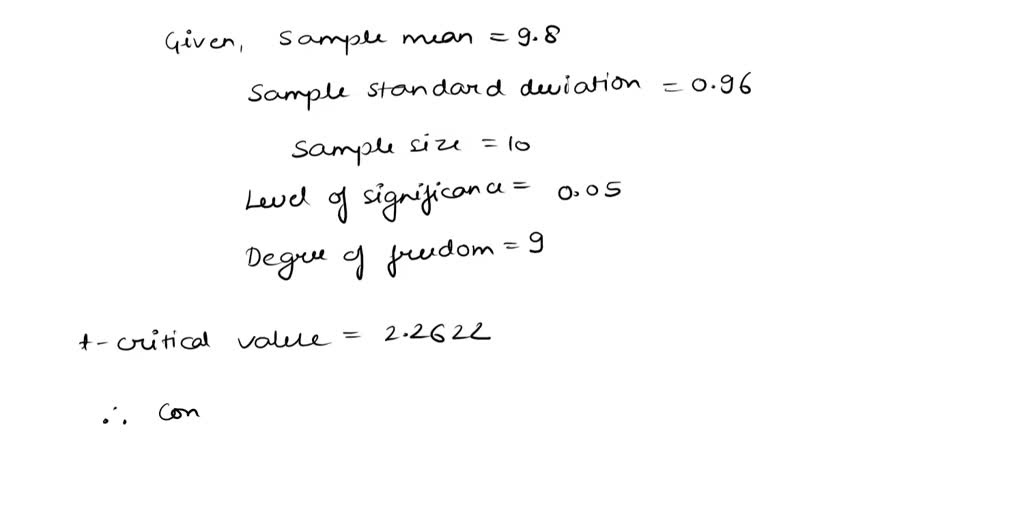 Given, Sample mean = 9.8
Sample standard deviation = 0.96
Sample size = 10
Level of significance = 0.05
Degree of freedom = 9
t-critical value = 2.2622
∴ Con